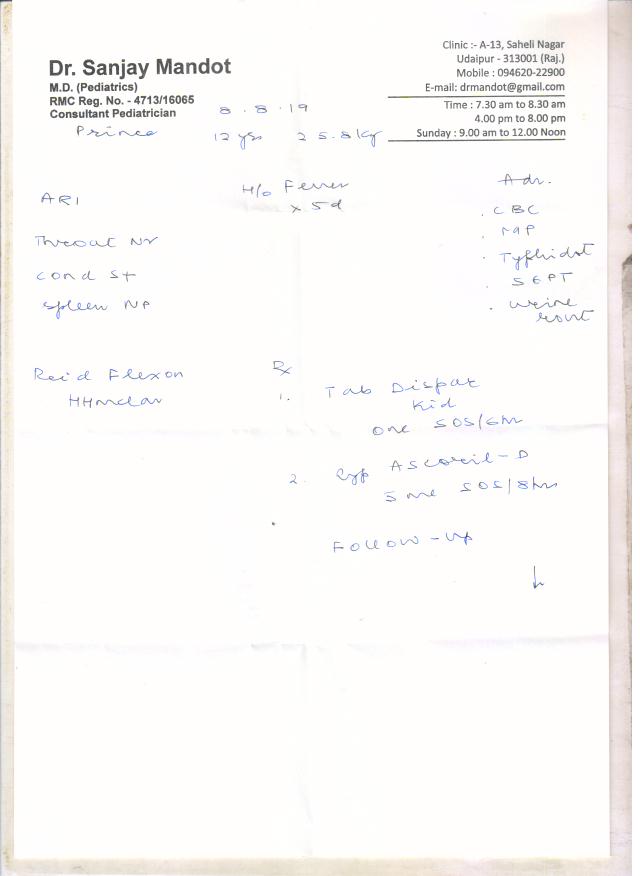 Dr. Sanjay Mandot
M.D. (Pediatrics)
RMC Reg. No. - 4713/16065
Consultant Pediatrician
Clinic :- A-13, Saheli Nagar
Udaipur - 313001 (Raj.)
Mobile : 094620-22900
E-mail: drmandot@gmail.com
Time : 7.30 am to 8.30 am
4.00 pm to 8.00 pm
Sunday : 9.00 am to 12.00 Noon
8.8.19
Prince 12 yrs 25.8 kg
ARI
H/o Fever
x 5d
Throat
Cond
Spleen NP
Adv.
. CBC
. MP
. Typhidot
. SGPT
. Urine
Rout
Rec'd Flexon
Rx
1. Tab
Kid
one SOS/6hr
2. Syp Ascoril-D
5 ml SOS/8hrs
Follow-up